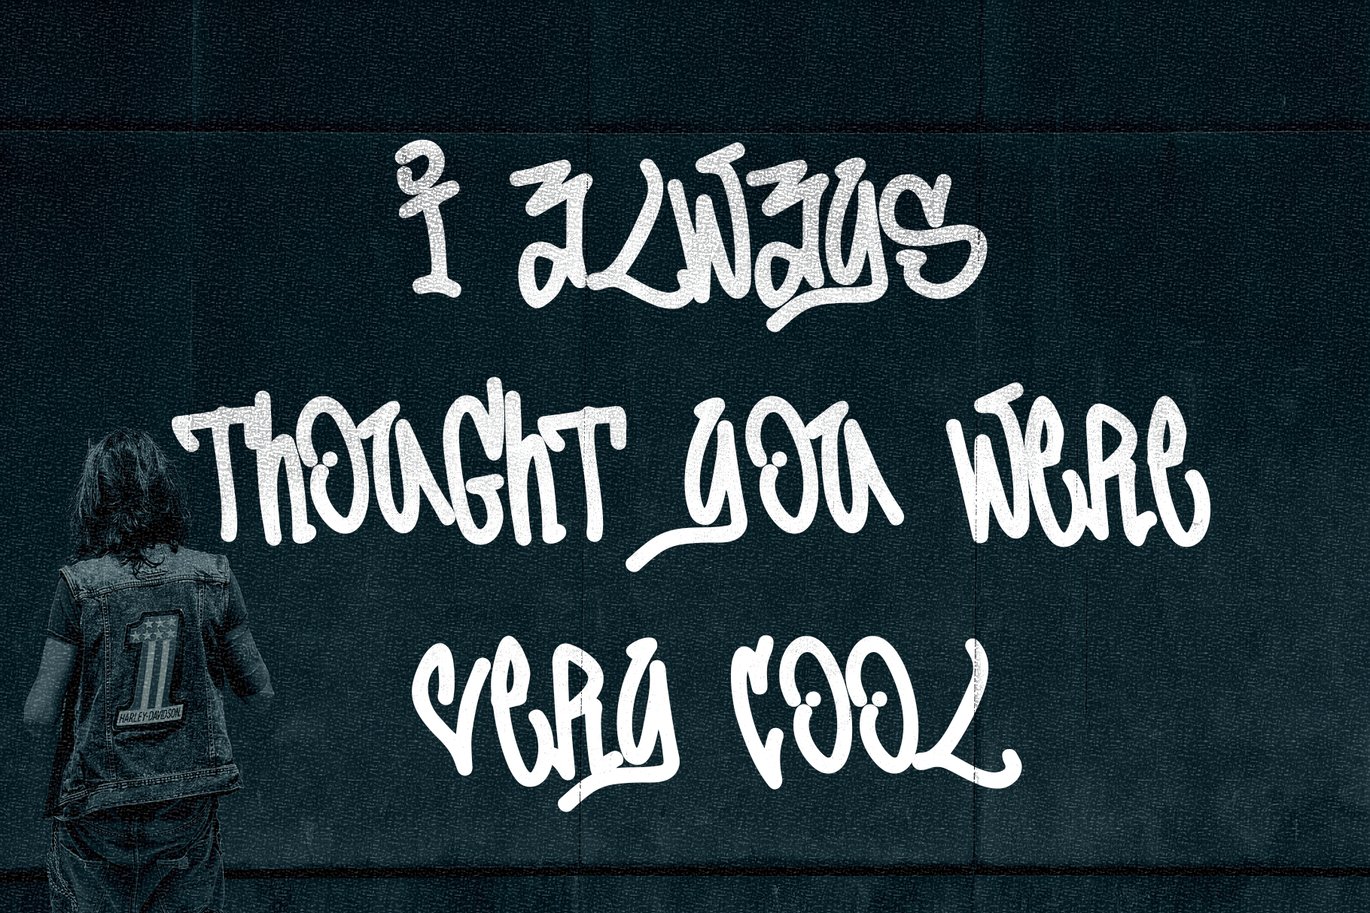 I ALWAYS
THOUGHT YOU WERE
VERY COOL
1
HARLEY-DAVIDSON